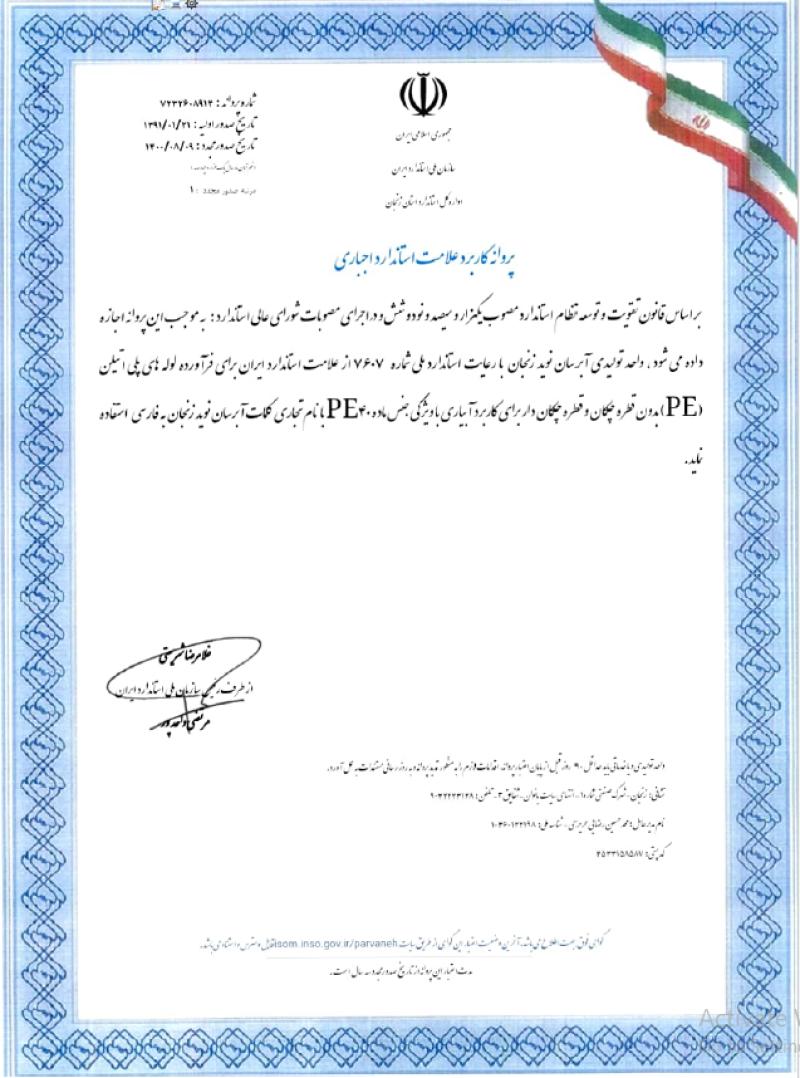 جمهوری اسلامی ایران
سازمان ملی استاندارد ایران
اداره کل استاندارد استان زنجان
شماره پروانه : ۷۲۳۲۶۰۸۹۱۴
تاریخ صدور اولیه : ۱۳۹۱/۰۱/۲۱
تاریخ صدور مجدد : ۱۴۰۰/۰۸/۰۹
مرتبه صدور مجدد : ۱
پروانه کاربرد علامت استاندارد اجباری
بر اساس قانون تقویت و توسعه نظام استاندارد مصوب یکهزار و سیصد و نود و شش و در اجرای مصوبات شورای عالی استاندارد : به موجب این پروانه اجازه
داده می شود ، واحد تولیدی آبرسان نوید زنجان با رعایت استاندارد ملی شماره ۷۶۰۷ از علامت استاندارد ایران برای فرآورده لوله های پلی اتیلن
(PE) بدون قطره چکان و قطره چکان دار برای کاربرد آبیاری با ویژگی جنس ماده PE۴۰ با نام تجاری کلمات آبرسان نوید زنجان به فارسی استفاده
نماید.
غلامرضا شریعتی
از طرف رئیس سازمان ملی استاندارد ایران
مرتضی واحدپور
واحد تولیدی و یا خدماتی باید حداقل ۹۰ روز قبل از پایان اعتبار پروانه، اقدامات لازم را به منظور تمدید پروانه و به روز رسانی مستندات به عمل آورد.
نشانی: زنجان - شهرک صنعتی شماره ۱ - انتهای سایت بانوان - شقایق ۳ - تلفن :
نام مدیر عامل : محمد حسین رضایی ، شناسه ملی:
کد پستی: ۴۵۳۳۱۵۸۵۸۷
گواهی فوق جهت اطلاع می باشد. آخرین وضعیت اعتبار این گواهی از طریق سایت isom.inso.gov.ir/parvaneh قابل دسترس و استنادی باشد.
مدت اعتبار این پروانه از تاریخ صدور مجدد سه سال است.